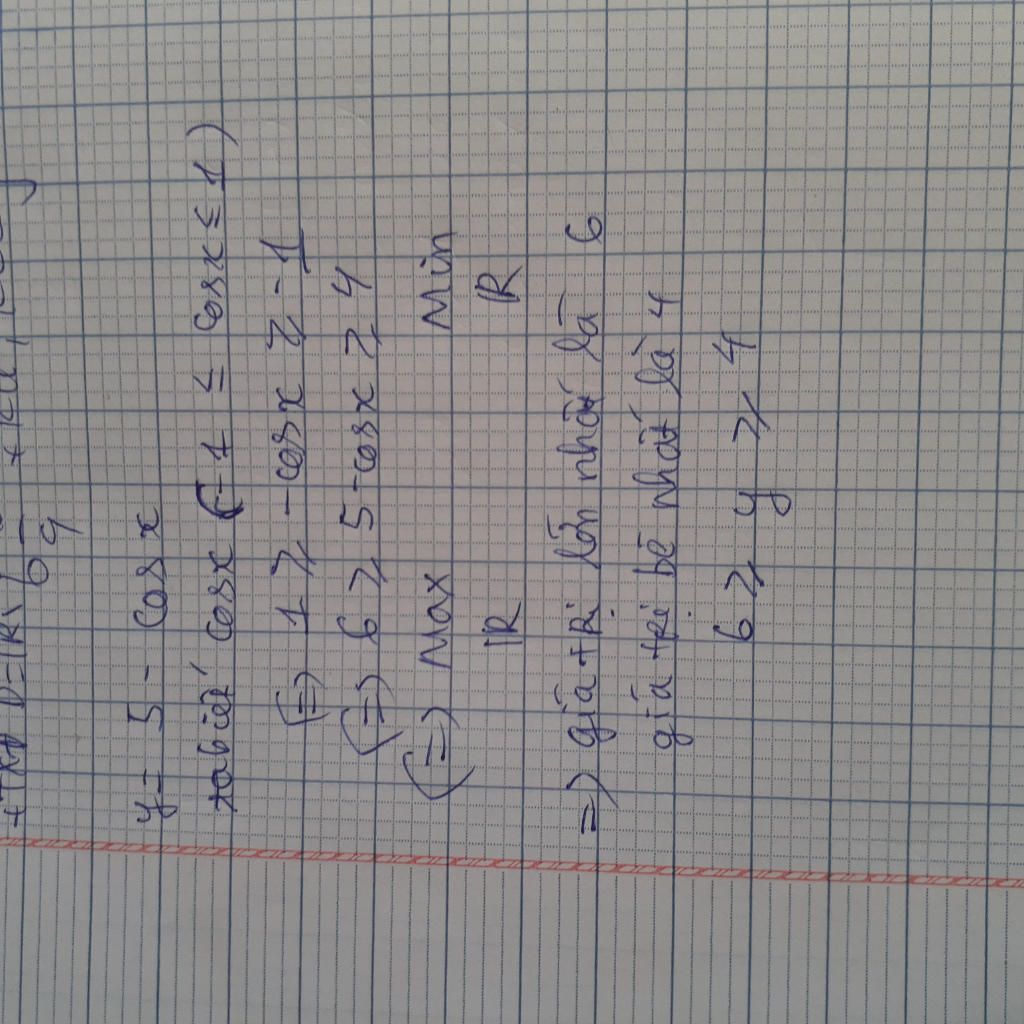 +TXĐ D=R\
y= 5 - cosx
ta biết cosx (-1 ≤ cosx ≤ 1)
(=) 1 ≥ -cosx ≥ -1
(=) 6 ≥ 5-cosx ≥ 4
(=) Max Min
R R
=) giá trị lớn nhất là 6
giá trị bé nhất là 4
6 ≥ y ≥ 4